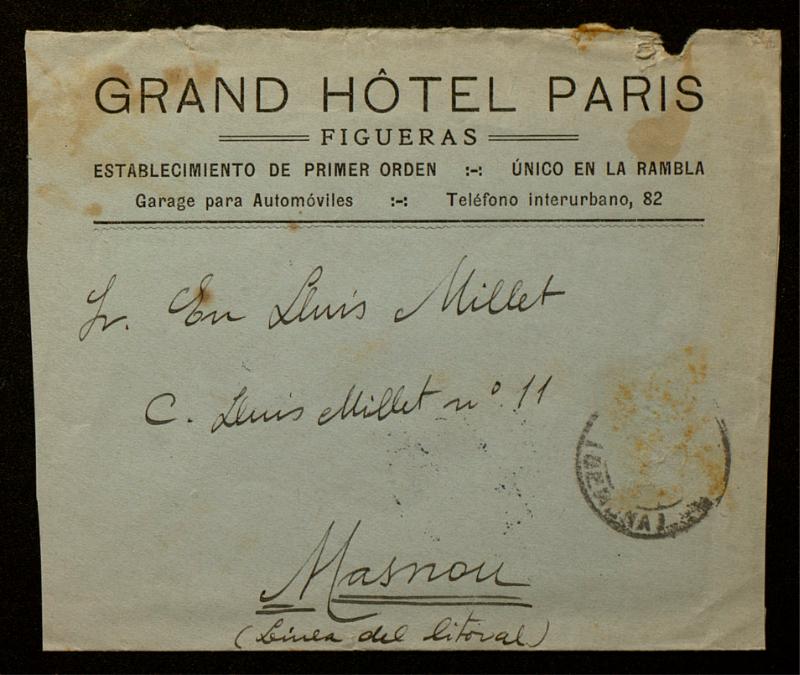 GRAND HÔTEL PARIS
FIGUERAS
ESTABLECIMIENTO DE PRIMER ORDEN :-: ÚNICO EN LA RAMBLA
Garage para Automóviles :-: Teléfono interurbano, 82
Sr. En Lluis Millet
C. Lluis Millet nº 11
Masnou
(Línea del litoral)